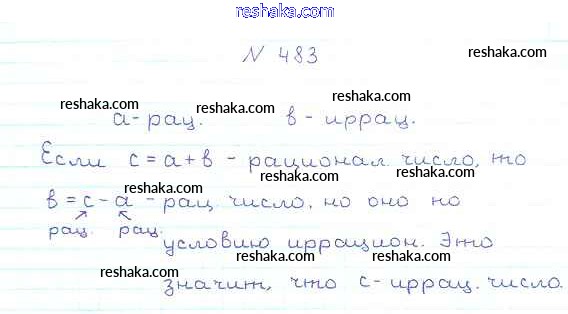 reshaka.com
№ 483
reshaka.com
reshaka.com
reshaka.com
reshaka.com
а - рац. в - иррац.
reshaka.com
Если с = а + в - рационал. число, то
reshaka.com
reshaka.com
в = с - а - рац. число, но оно по
reshaka.com
рац. рац.
reshaka.com
условию иррацион. Это
reshaka.com
reshaka.com
значит, что с - иррац. число.
reshaka.com